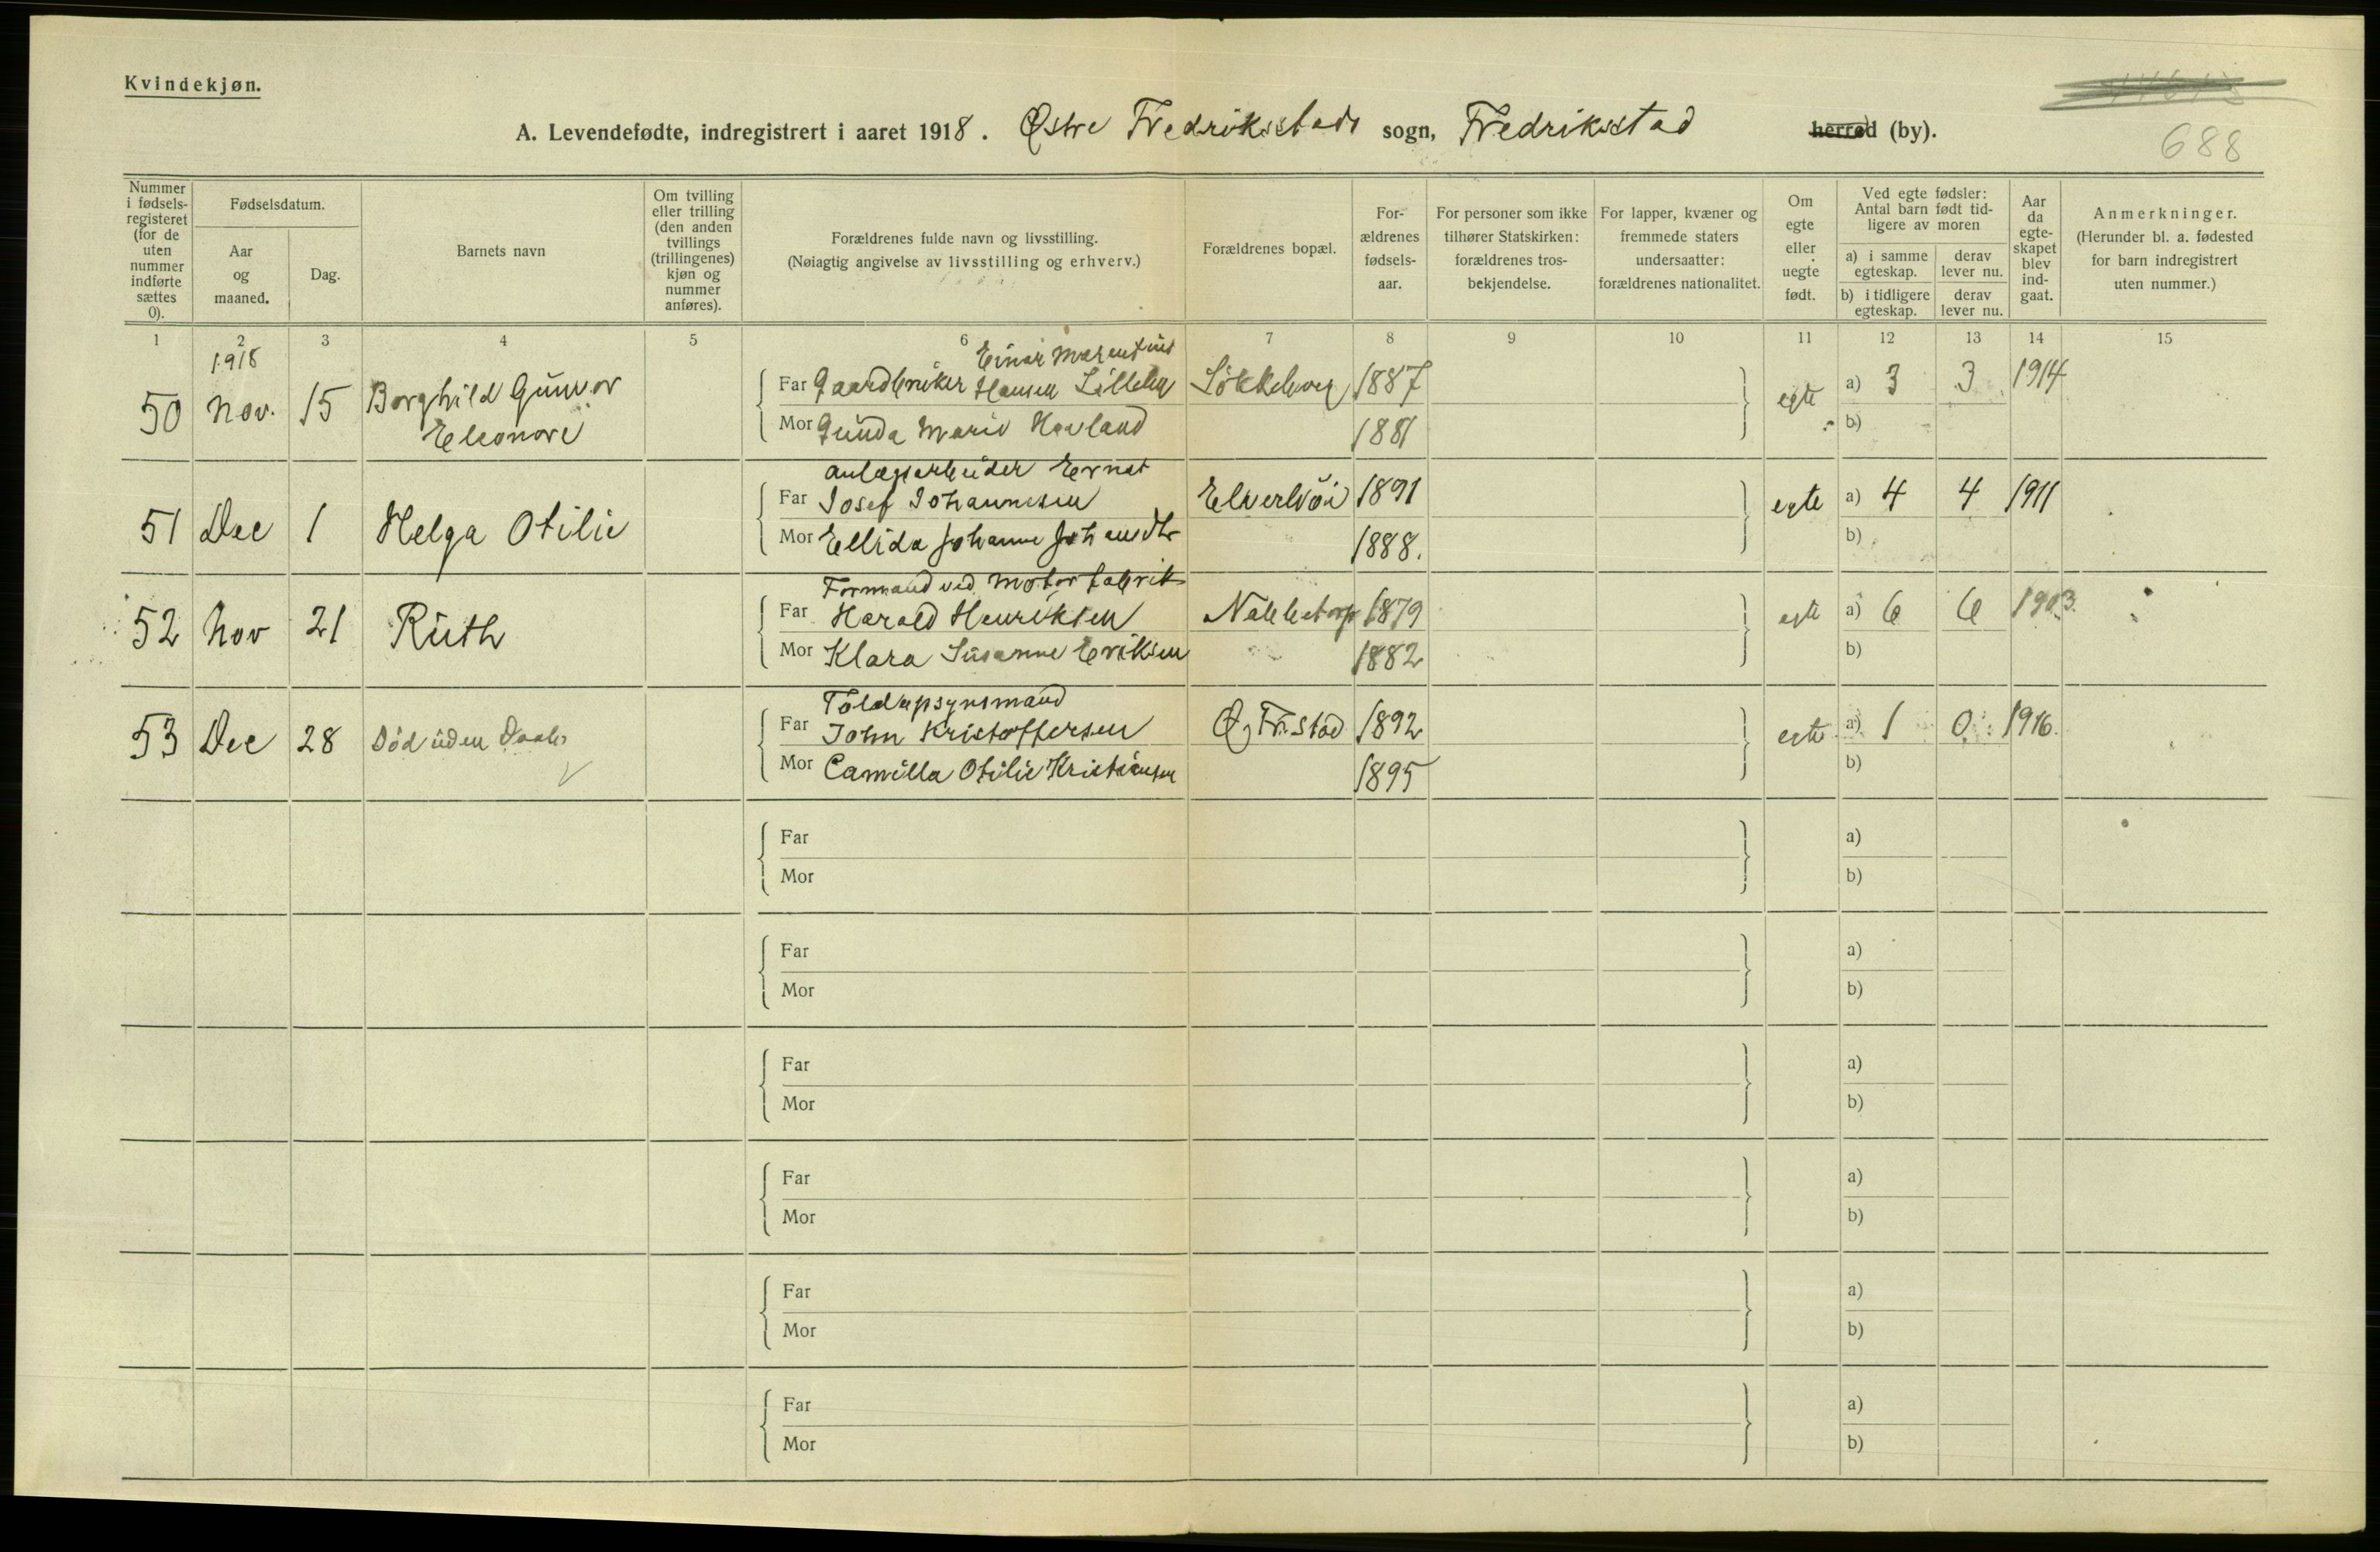 Kvindekjøn.
A. Levendefødte, indregistrert i aaret 1918. Østre Fredriksstads sogn, Fredriksstad herred (by).
688
Nummer i fødselsregisteret (for de uten nummer indførte sættes 0).
Fødselsdatum.
Aar og maaned.
Dag.
Barnets navn
Om tvilling eller trilling (den anden tvillings (trillingenes) kjøn og nummer anføres).
Forældrenes fulde navn og livsstilling.
(Nøiagtig angivelse av livsstilling og erhverv.)
Forældrenes bopæl.
Forældrenes fødselsaar.
For personer som ikke tilhører Statskirken: forældrenes trosbekjendelse.
For lapper, kvæner og fremmede staters undersaatter: forældrenes nationalitet.
Om egte eller uegte født.
Ved egte fødsler: Antal barn født tidligere av moren
a) i samme egteskap.
derav lever nu.
b) i tidligere egteskap.
derav lever nu.
Aar da egteskapet blev indgaat.
Anmerkninger.
(Herunder bl. a. fødested for barn indregistrert uten nummer.)
1 2 3 4 5 6 7 8 9 10 11 12 13 14 15
1918
Einar
50 Nov. 15 Borghild Gunvor Far Gaardbruker Hansen 1887 egte a) 3 3 1914
Eleonore Mor Gunda Marie Hovland 1881 b)
Anlægsarbeider Ernst
51 Dec 1 Helga Otilie Far Josef Johannesen 1891 egte a) 4 4 1911
Mor Ellida Johanne 1888. b)
Formand ved Motorfabrik
52 Nov 21 Ruth Far Harald Henriksen Nabbetorp 1879 egte a) 6 6 1903.
Mor Klara Susanne Eriksen 1882 b)
Toldopsynsmand
53 Dec 28 Død uden Daab Far John Kristoffersen Ø, Fr.stad 1892 egte a) 1 0 1916.
Mor Camilla Otilie Kristiansen 1895 b)
Far a)
Mor b)
Far a)
Mor b)
Far a)
Mor b)
Far a)
Mor b)
Far a)
Mor b)
Far a)
Mor b)